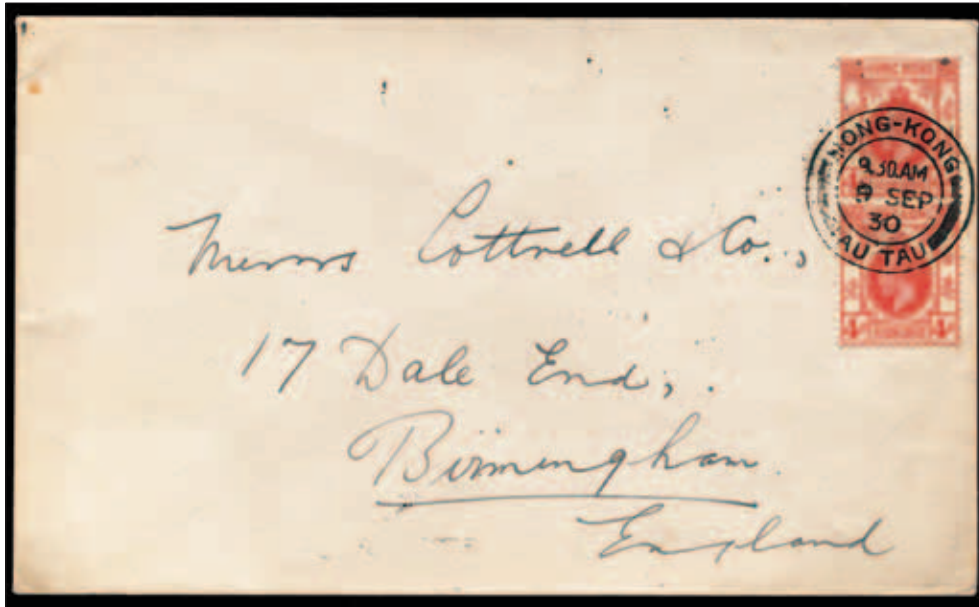 HONG-KONG
9.30.AM
9 SEP
30
AU TAU
4
4
Messrs Cottrell & Co.,
17 Dale End,
Birmingham
England